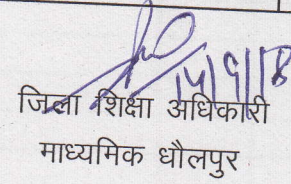 14/9/18
जिला शिक्षा अधिकारी
माध्यमिक धौलपुर